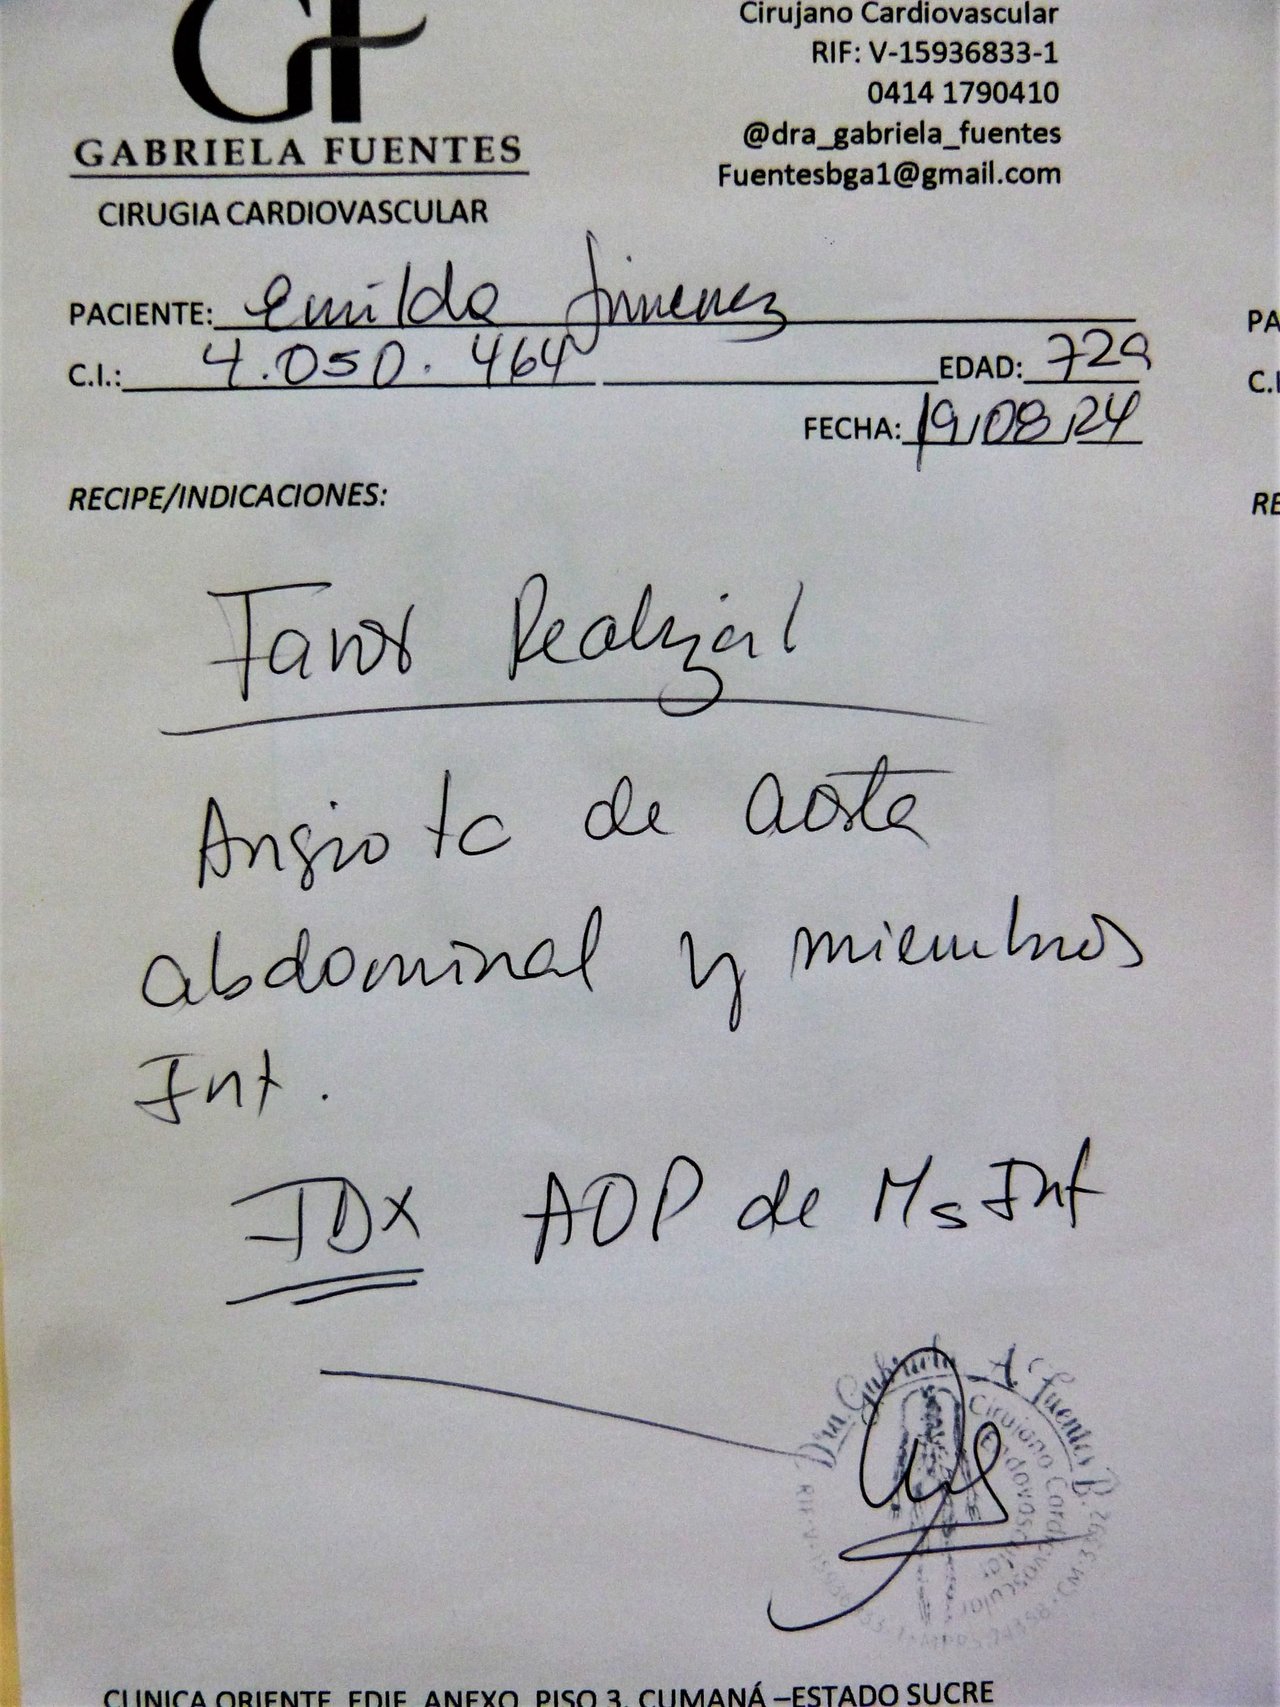 GF
Cirujano Cardiovascular
RIF: V-15936833-1
0414 1790410
@dra_gabriela_fuentes
Fuentesbga1@gmail.com
GABRIELA FUENTES
CIRUGIA CARDIOVASCULAR
PACIENTE: Emilda Jimenez
C.I.: 4.050.464 EDAD: 72a
FECHA: 19/08/24
PA
C.I
RECIPE/INDICACIONES:
RE
Favor Realizar
Angio tc de aorta
abdominal y miembros
Inf.
IDx AOP de Ms Inf
Dra. Gabriela A. Fuentes B.
Cirujano Cardiovascular
Endovascular
CLINICA ORIENTE, EDIF. ANEXO, PISO 3. CUMANÁ –ESTADO SUCRE